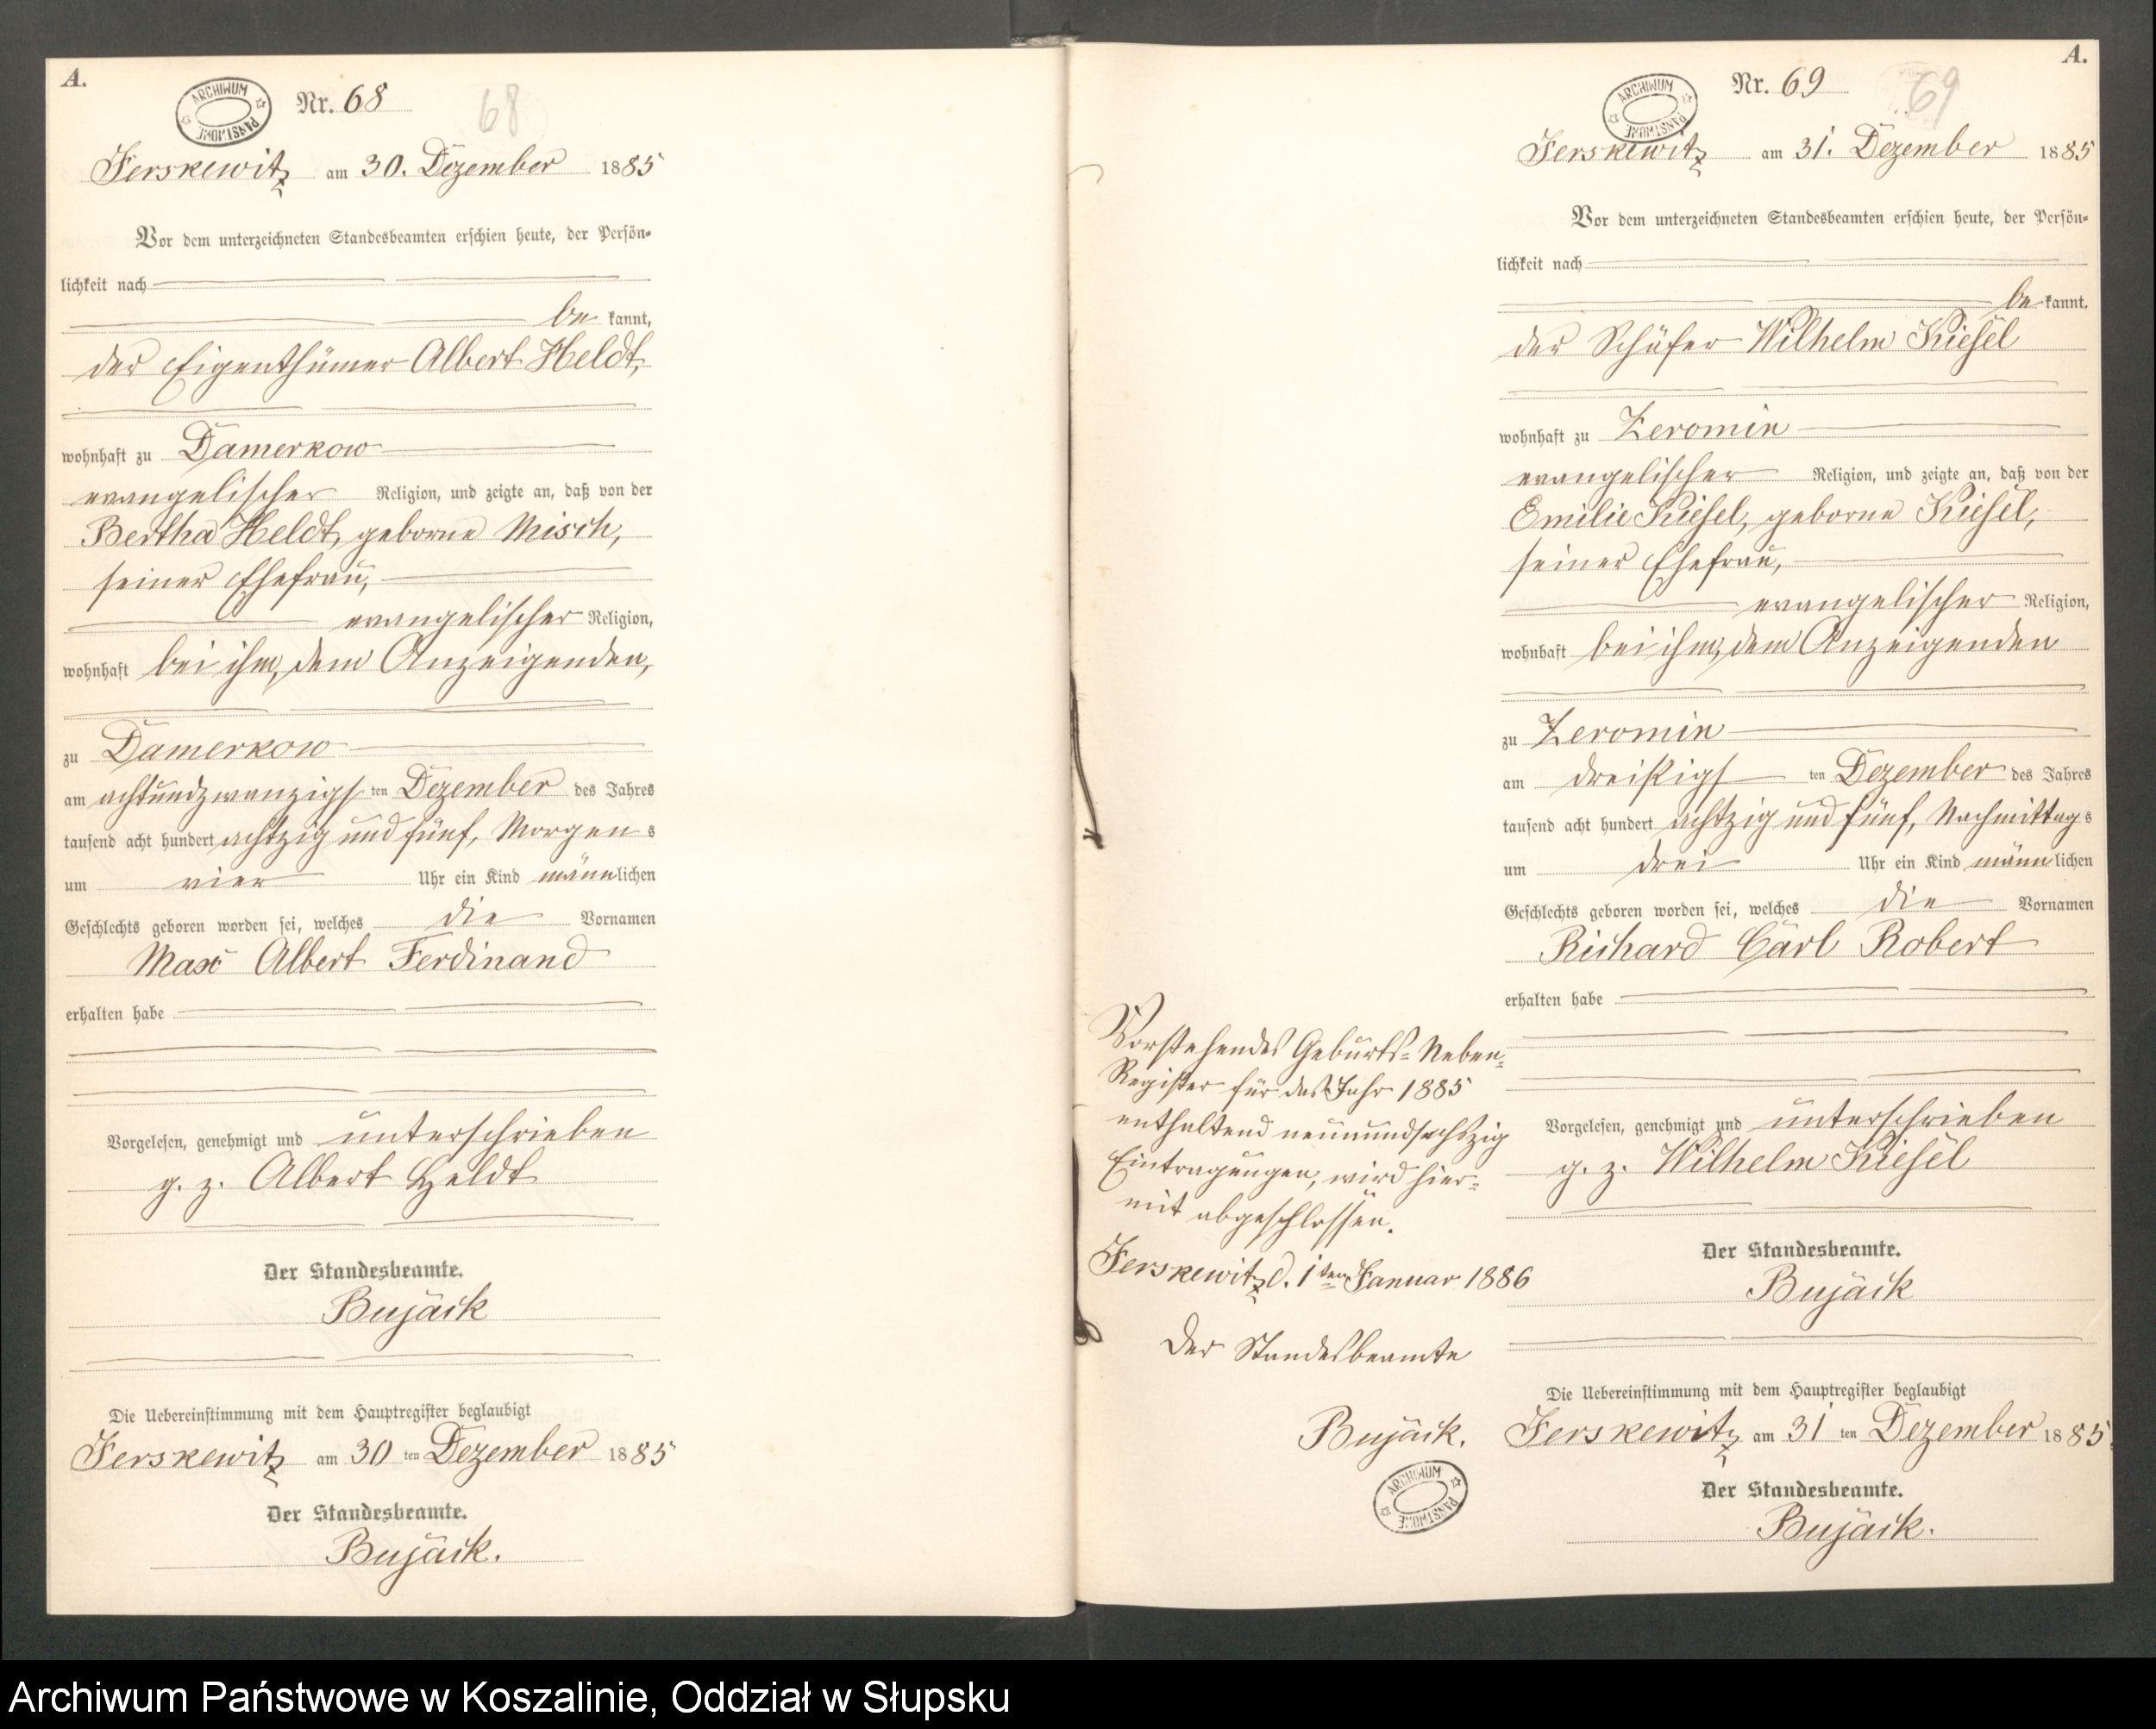 A.
ARCHIWUM PAŃSTWOWE
Nr. 68
68
Jerskewitz am 30. Dezember 1885
Vor dem unterzeichneten Standesbeamten erschien heute, der Persön-
lichkeit nach
be kannt,
der Eigenthümer Albert Heldt,
wohnhaft zu Damerkow
evangelischer Religion, und zeigte an, daß von der
Bertha Heldt, geborne Misch,
seiner Ehefrau,
evangelischer Religion,
wohnhaft bei ihm, dem Anzeigenden,
zu Damerkow
am achtundzwanzigsten Dezember des Jahres
tausend acht hundert achtzig und fünf, Morgens
um vier Uhr ein Kind männlichen
Geschlechts geboren worden sei, welches die Vornamen
Max Albert Ferdinand
erhalten habe
Vorgelesen, genehmigt und unterschrieben
g. z. Albert Heldt
Der Standesbeamte.
Bujäck
Die Uebereinstimmung mit dem Hauptregister beglaubigt
Jerskewitz am 30 ten Dezember 1885
Der Standesbeamte.
Bujäck.
A.
ARCHIWUM PAŃSTWOWE
Nr. 69
69
Jerskewitz am 31. Dezember 1885
Vor dem unterzeichneten Standesbeamten erschien heute, der Persön-
lichkeit nach
be kannt,
der Schäfer Wilhelm Kiesel
wohnhaft zu Zeromin
evangelischer Religion, und zeigte an, daß von der
Emilie Kiesel, geborne Kiesel,
seiner Ehefrau,
evangelischer Religion,
wohnhaft bei ihm, dem Anzeigenden
zu Zeromin
am dreißigsten Dezember des Jahres
tausend acht hundert achtzig und fünf, Nachmittags
um drei Uhr ein Kind männlichen
Geschlechts geboren worden sei, welches die Vornamen
Richard Carl Robert
erhalten habe
Vorgelesen, genehmigt und unterschrieben
g. z. Wilhelm Kiesel
Der Standesbeamte.
Bujäck
Die Uebereinstimmung mit dem Hauptregister beglaubigt
Jerskewitz am 31 ten Dezember 1885.
Der Standesbeamte.
Bujäck.
Vorstehendes Geburts-Neben-
Register für das Jahr 1885
enthaltend neunundsechszig
Eintragungen, wird hier-
mit abgeschlossen.
Jerskewitz d. 1ten Januar 1886
Der Standesbeamte
Bujäck.
ARCHIWUM PAŃSTWOWE
Archiwum Państwowe w Koszalinie, Oddział w Słupsku